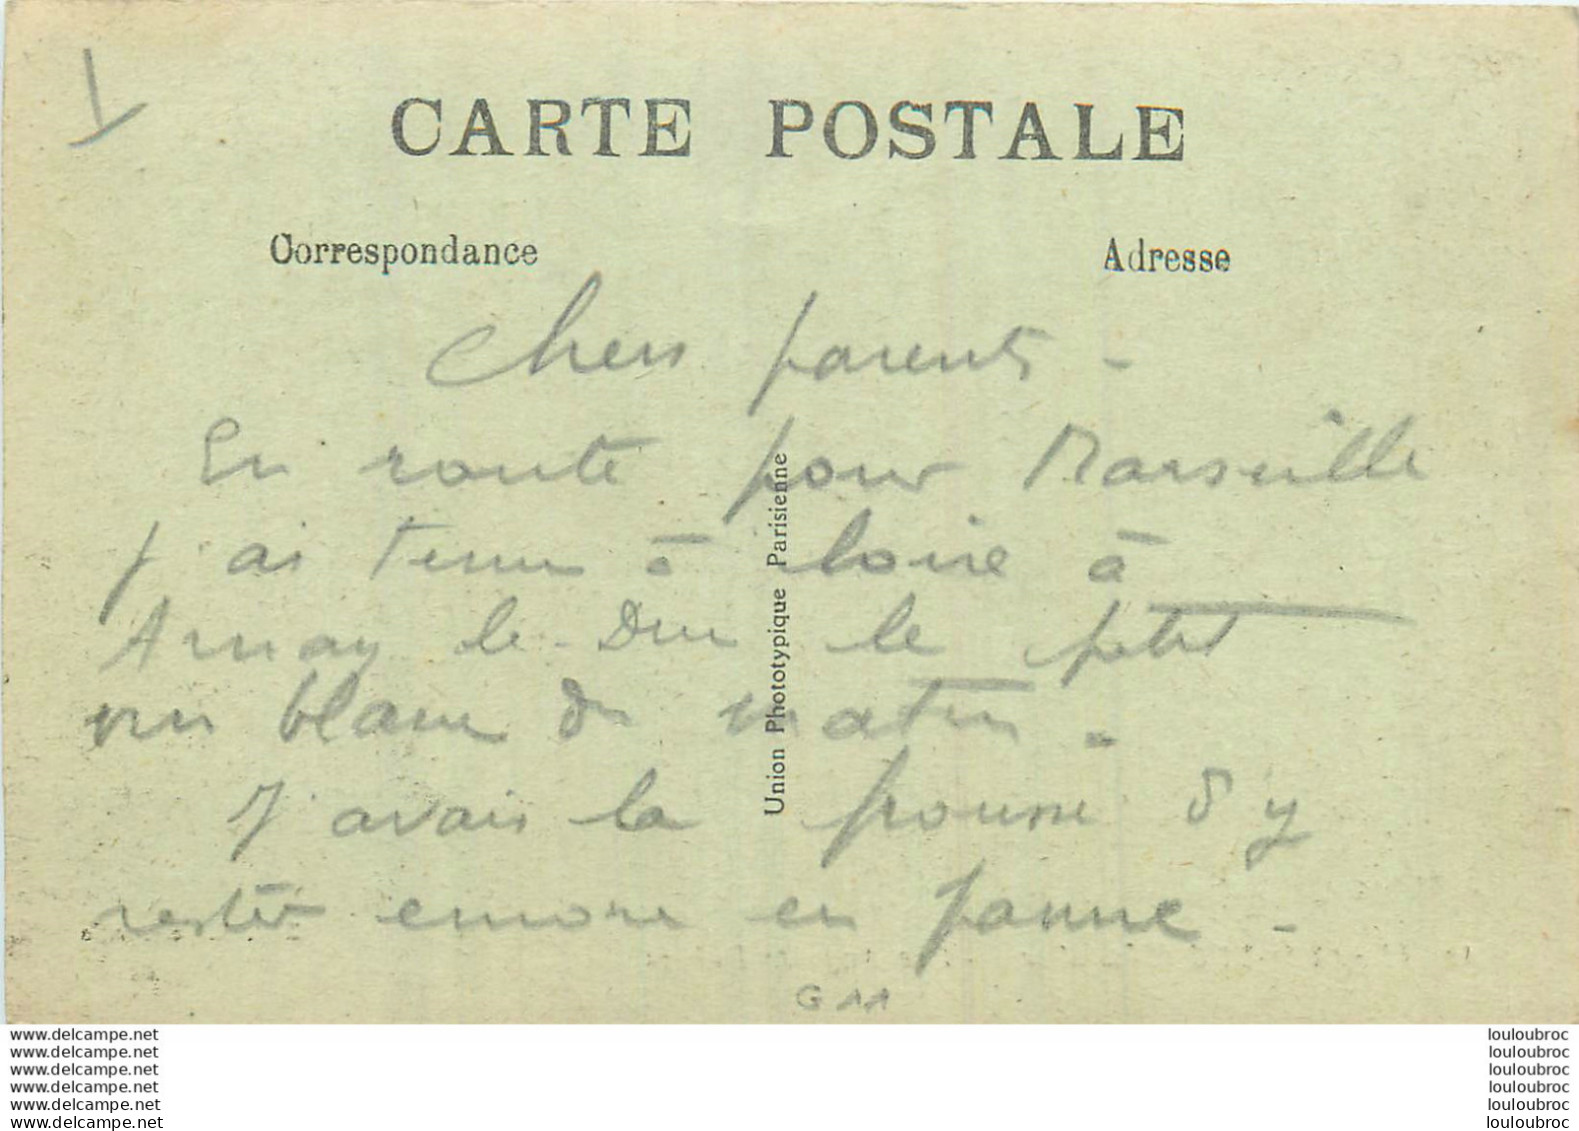 CARTE POSTALE
Correspondance
Adresse
Chers parents -
En route pour Marseille
j'ai tenu à boire à
Arnay le-Duc le petit
vin blanc du matin -
J'avais la frousse d'y
rester encore en panne -
Union Phototypique Parisienne
G 11
www.delcampe.net
www.delcampe.net
www.delcampe.net
www.delcampe.net
www.delcampe.net
www.delcampe.net
louloubroc
louloubroc
louloubroc
louloubroc
louloubroc
louloubroc